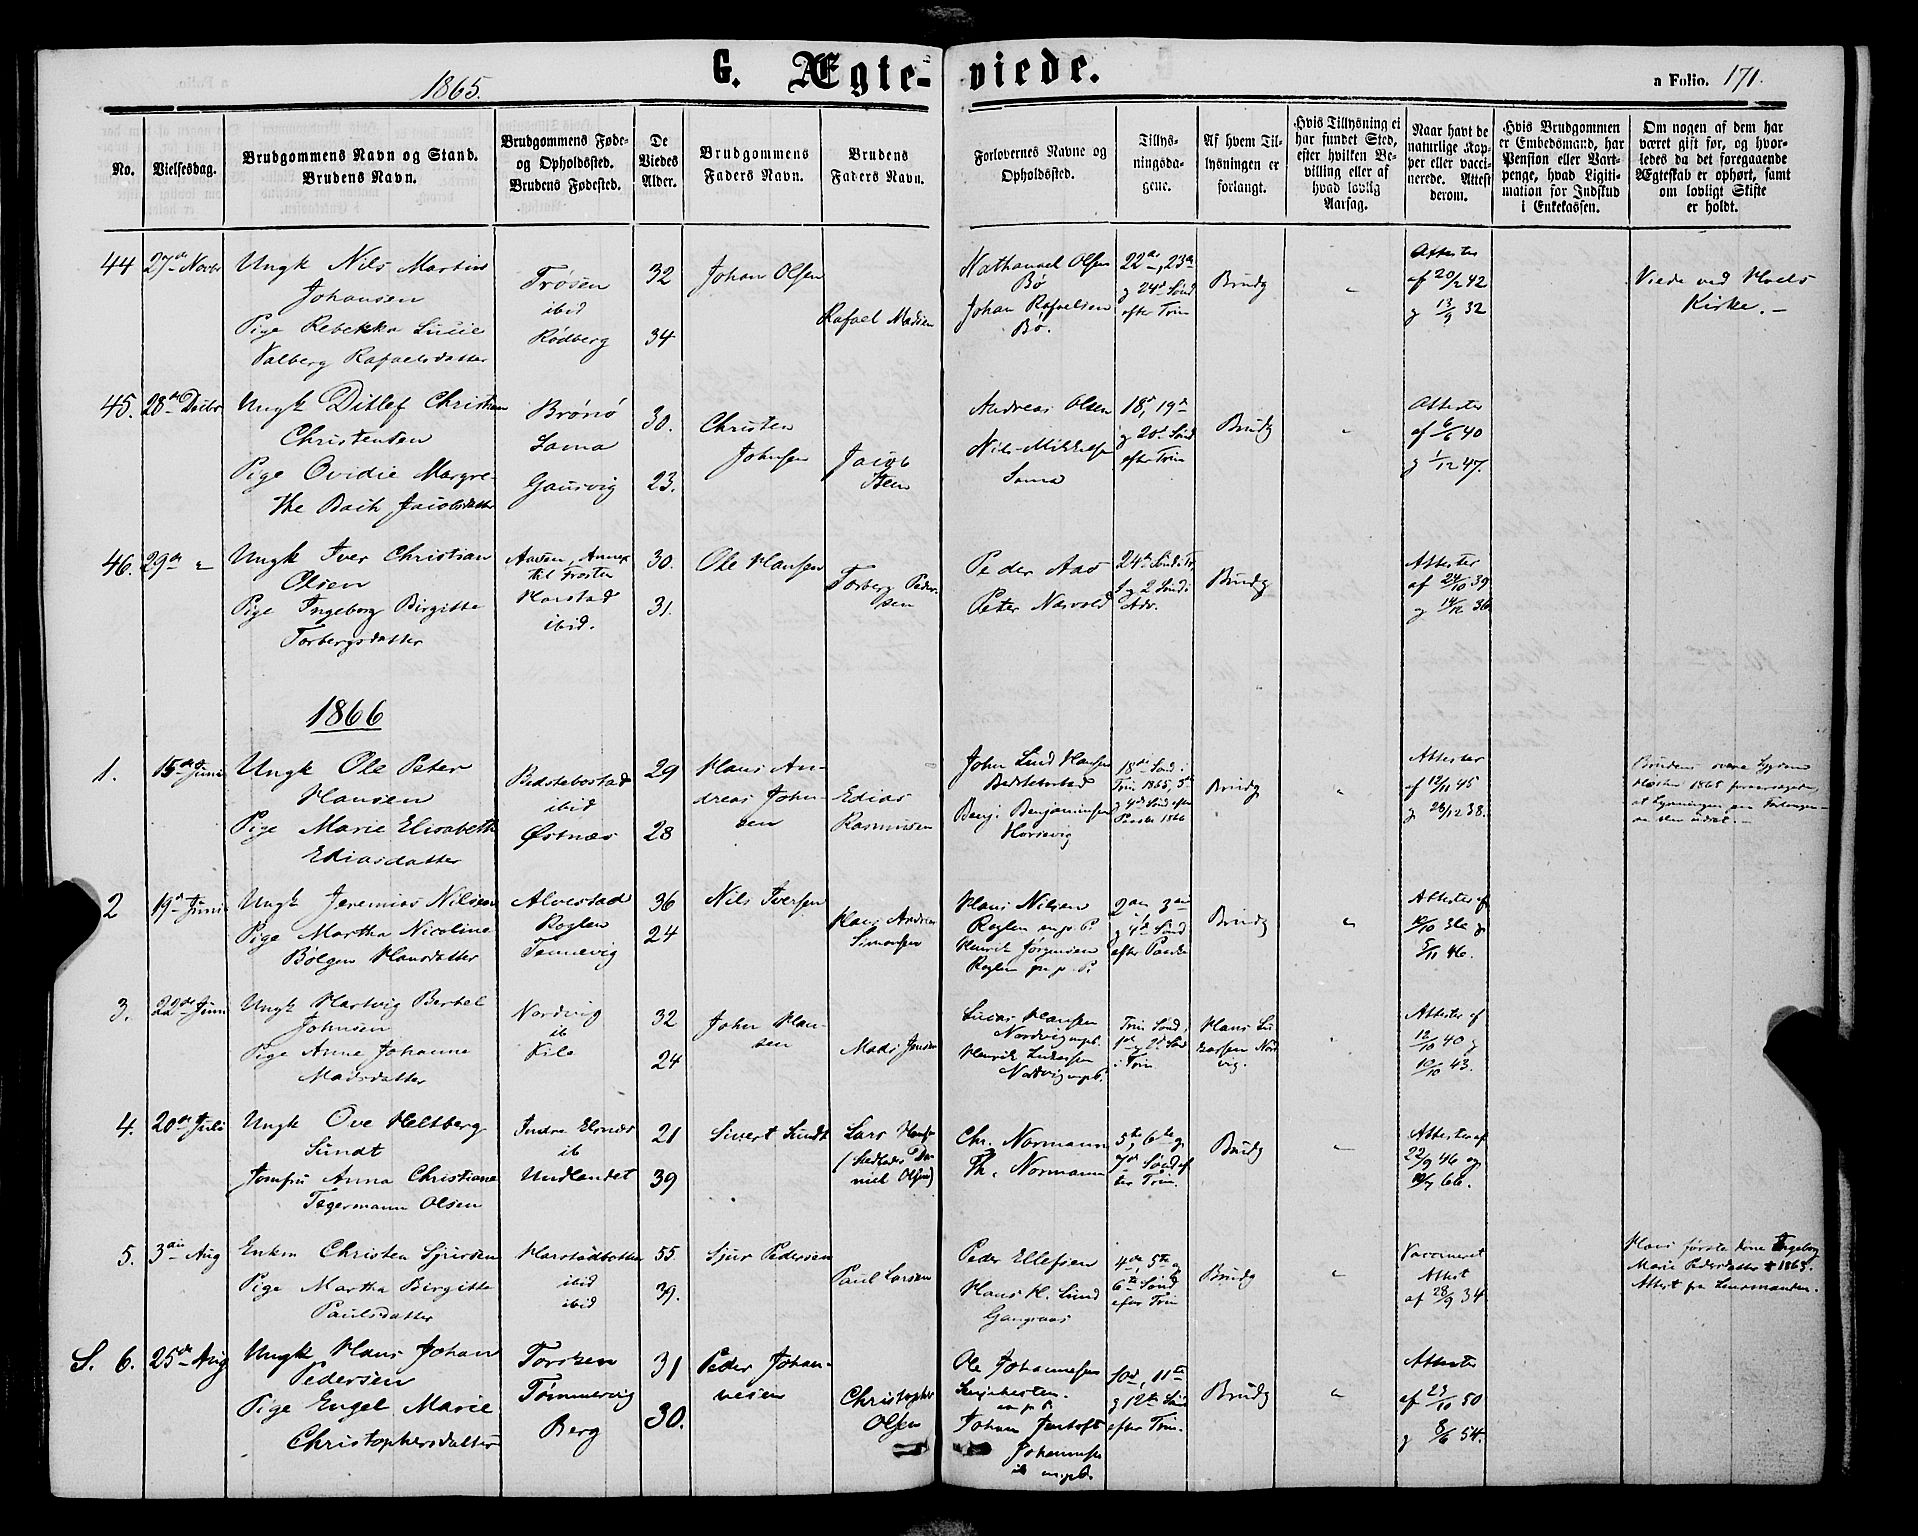 1865.
G. Ægte-viede.
a Folio. 171.
No.
Vielsesdag.
Brudgommens Navn og Stand.
Brudens Navn.
Brudgommens Føde-
og Opholdssted.
Brudens Fødested.
De
Viedes
Alder.
Brudgommens
Faders Navn.
Brudens
Faders Navn.
Forlovernes Navne og
Opholdssted.
Tillys-
ningsda-
gene.
Af hvem Til-
lysningen er
forlangt.
Hvis Tillysning ei
har fundet Sted,
efter hvilken Be-
villing eller af
hvad lovlig
Aarsag.
Naar havt de
naturlige Kop-
per eller vacci-
nerede. Attest
derom.
Hvis Brudgommen
er Embedsmand, har
Pension eller Vart-
penge, hvad Ligiti-
mation for Indskud
i Enkekassen.
Om nogen af dem har
været gift før, og hvor-
ledes da det foregaaende
Ægteskab er ophørt, samt
om lovligt Skifte
er holdt.
44 27de Novbr
Ungk Nils Martin
Johansen
Pige Rebekka Lucie
Valberg Rafaelsdatter
Trøsen
ibid
Rødberg
32
34
Johan Olsen
Rafael Madsen
Nathanael Olsen
Bø
Johan Rafaelsen
Bø.
22de, 23de
g 24de Sønd
efter Trin
Brudg
"
Attester
af 20/2 42
g 13/9 32
Viede ved Hols
Kirke. -
45. 28de Decbr
Ungk Ditlef Christian
Christensen
Pige Ovidie Margre-
the Bach Jacobsdatter
Brønø
Sama
Gausvig
30.
23.
Christen
Johnsen
Jacob
Steen
Andreas Olsen
Nils Mikkelsen
Sama
18de, 19de
g 20de Sønd
efter Trin
Brudg
"
Attester
af 6/6 40
g 1/12 47.
46. 29de "
Ungk Iver Christian
Olsen
Pige Ingeborg Birgitte
Torbergsdatter
Aasen, Annex
til Frosten
Harstad
ibid.
30.
31.
Ole Hansen
Torberg Peder-
sen
Peder Aas
Peter Narvold
24de Sønd e Tr
1 g 2 Sønd i
Adv.
Brudg
Attester
af 24/10 39
g 14/12 36
1866
1. 15de Juni
Ungk Ole Peter
Hansen
Pige Marie Elisabeth
Ediasdatter
Beistebostad
ibid
Østnæs
29
28
Hans An-
dreas John-
sen
Edias
Rasmussen
John Lind Hansen
Beistebostad
Benj. Benjaminsen
Horsevig
18de Sønd i
Trin 1865, 3de
g 4de Sønd efter
Paaske 1866
Brudg
"
Attester
af 12/11 45
g 28/12 38.
Brudens svære Sygdom
Høsten 1865 foraarsagede,
at Lysningen
2 19de Juni
Ungk Jeremias Nilsen
Pige Martha Nicoline
Bølgen Hansdatter
Alvestad
Roglen
Tennevig
36
24
Nils Iversen
Hans Andreas
Simonsen
Hans Nilsen
Roglen m.p.P.
Henrik Jørgensen
Roglen m.p.P.
2den 3die
g 4de Sønd
efter Paaske
Brudg
"
Attester af
12/10 36 g
5/11 46.
3. 22de Juni
Ungk Hartvig Bertel
Johnsen
Pige Anne Johanne
Madsdatter
Nordvig
ib
Kile
32
24
John Han-
sen
Mads Jensen
Lucas Hansen
Nordvig m.p.P.
Henrik Lukassen
Nordvig m.p.P.
Trin Sønd,
1ste g 2d Sønd
i Trin
Hans Lu
kassen Nord
vig.
"
Attester af
12/10 40 g
12/10 43.
4. 20de Juli
Ungk Ove Heltberg
Sundt
Jomfru Anna Christiane
Tegermann Olsen
Indre Elnæs
ib
Undlandet
21
39
Sivert Sundt
Lars Hansen
(Stedfader Da-
niel Olsen)
Chr. Normann
Th. Normann
5te, 6te g
7de Sønd ef
ter Trin.
Brudg
"
Attester af
22/9 46 og
18/7 66.
5. 3die Aug
Enkm Christen Sjursen
Pige Martha Birgitte
Paulsdatter
Harstadbotten
ibid
ibid
55
39.
Sjur Pedersen
Paul Larsen
Peder Ellefsen
Hans H. Lund
Gangsaas
4de, 5te g
6te Sønd
efter Trin
Brudg
"
Vaccineret
Attest
af 28/9 34
Hans første Kone Ingeborg
Marie Pedersdatter † 1865.
Attest fra Lensmanden.
S. 6. 25de Aug
Ungk Hans Johan
Pedersen
Pige Engel Marie
Christophersdatter
Torsken
Tømmervig
Berg
31
30.
Peder Johan-
nesen
Christopher
Olsen
Ole Johannesen
m.p.P.
Johan Jentoft
Johannesen
ib m.p.P.
10de, 11te
g 12te Sønd
efter Trin.
Brudg
"
Attester
af 23/10 50
g 8/6 54.